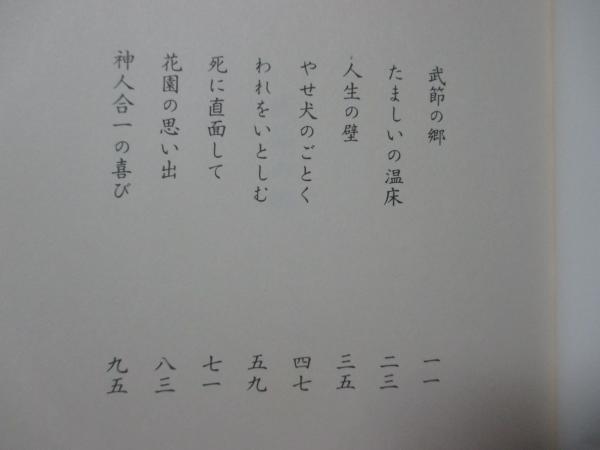 武節の郷 一一
たましいの温床 二三
人生の壁 三五
やせ犬のごとく 四七
われをいとしむ 五九
死に直面して 七一
花園の思い出 八三
神人合一の喜び 九五